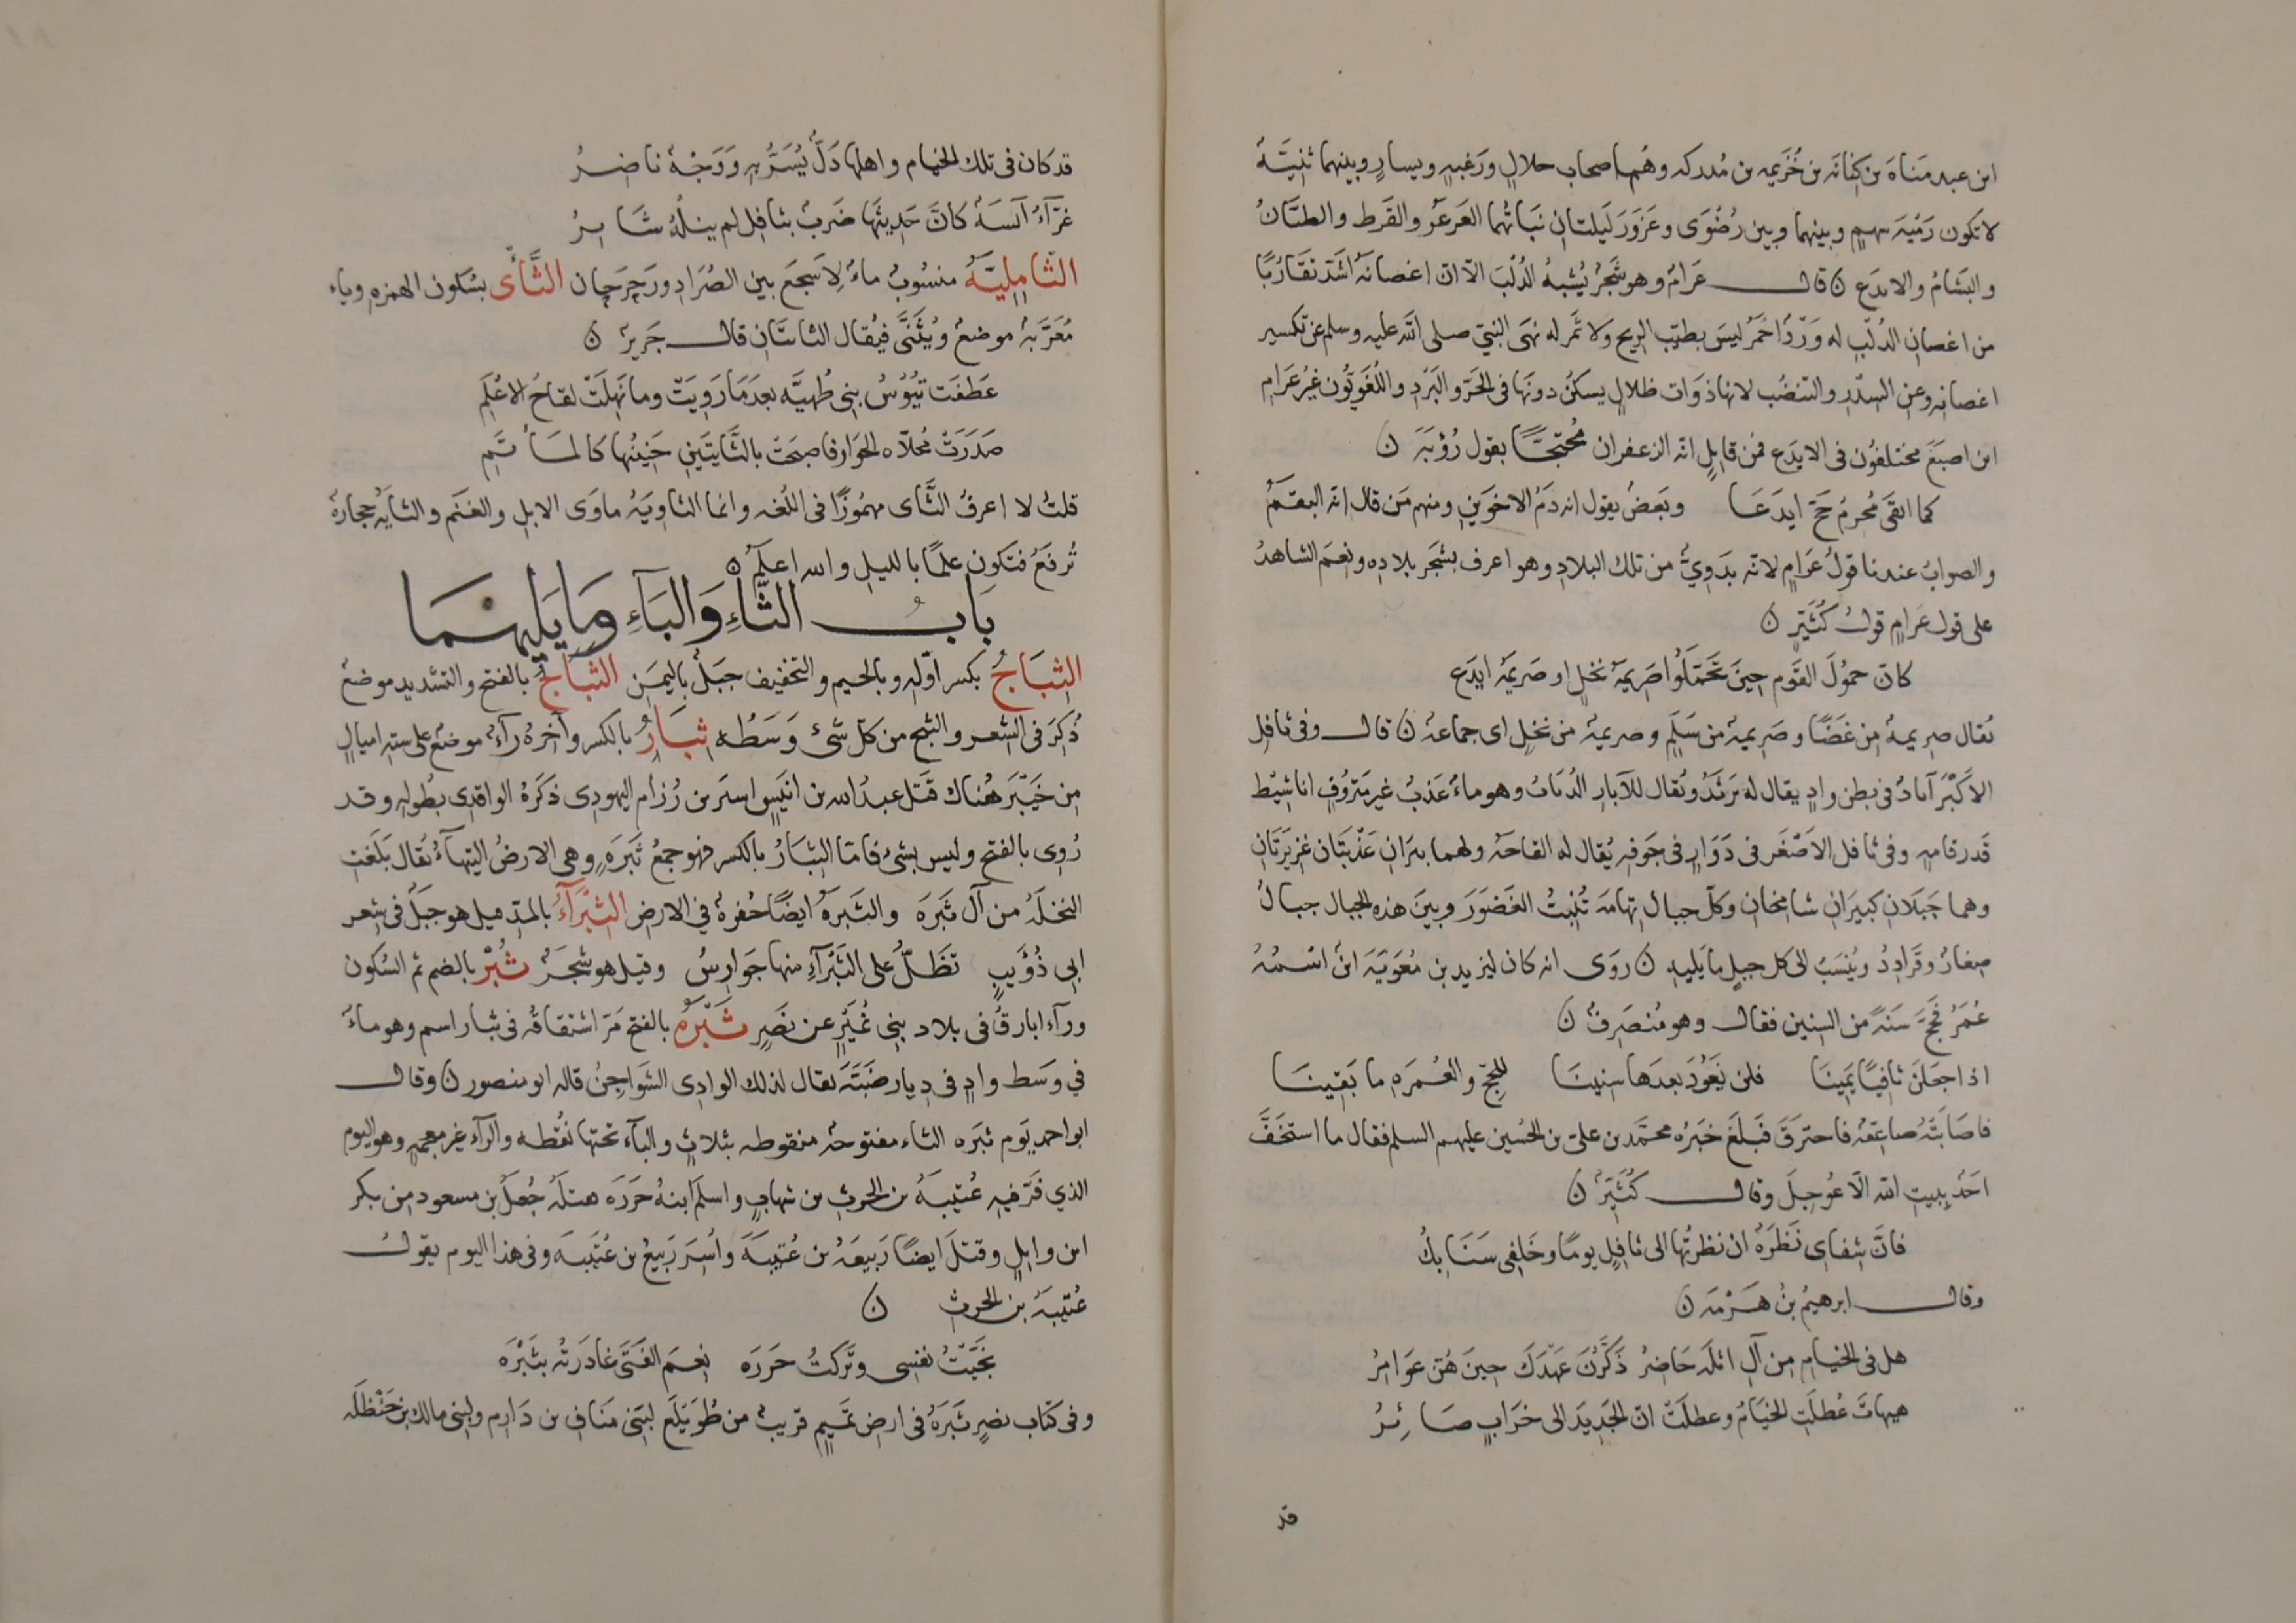 ابن عبد مَناهَ بن كِنانَه بن خُزَيمه بن مُدركه وهُم اصحاب حلالٍ ورَغبهٍ ويسارٍ وبينهما ثنيَّةُ
لا تكون رَميَه سهمٍ وبينهما وبين رُضْوَى وعَزْوَرَ لَيلتان نبَاتُهما العَرعَر والقَرط والظيَّانُ
والبَشامُ والايدَع ن قالــ عَرامُ وهو شجَرُ يُشبهُ الدُلبَ الّا انّ اغصانَهُ اشَدّ تقَارُبًا
من اغصان الدُلب له وَرْدٌ احمَرُ ليسَ بطيّب الريح ولا ثمَر له نهَى النبيّ صلى الله عليه وسلم عن تكسير
اغصانه وعن السِدْر والتنضُب لانها ذوَات ظلالٍ يسكنُ دونَها فى الحَرّ والبَرْدِ واللُغَويُّون غيرُ عَرامِ
ابن اصبَغَ مختلفُون فى الايدَع فمن قايلٍ انّه الزعفران مُحتجًّا بقول رُؤبَهَ ن
كما اتقى مُحرِمُ حَجّ ايدَعَا وبَعضُ يقول انه دَمُ الاخوَين ومنهم مَن قال انّه البقَمُّ
والصوابُ عندنا قولُ عَرامٍ لانّه بدَويٌّ من تلك البلادِ وهو اعرف بشجَر بلاده ونعمَ الشاهدُ
على قول عَرامٍ قولُ كُثيّرٍ ن
كانّ حمُولَ القَوم حينَ تحَمّلُوا صَريمَهُ نخلٍ او صَريمَهُ ايدَع
يُقال صريمهُ من غَضًا وصَريمهُ من سَلَمٍ وصريمهُ من نخلٍ اى جماعهُ ن قالــ وفى ثافل
الاكبَر آبارُ فى بطن وادٍ يقال له يَرثَدُ ويُقال للآبار الدُبَابُ وهو ماءُ عَذبُ غير مَنزُوفٍ اناشيطُ
قَدر قامهٍ وفى ثافل الاصْغَر فى دَوَّارٍ فى جَوفهِ يُقال له القاحَه ولهما بئرانِ عَذْبَتان غزيرَتانِ
وهما جَبلان كبيرَان شامخان وكلّ جبال تهامَهَ تُنبتُ الغَضْوَرَ وبينَ هذه الجبال جبالُ
صغارُ وقَرادِدُ ويُنسَبُ الى كل جبلٍ ما يَليه ن روَى انه كان ليزيد بن مُعوَيَهَ ابنُ اسمُهُ
عُمَرُ فحجّ سَنَهً من السِنين فقالــ وهو مُنصَرفُ ن
اذا جعَلنَ ثافِيًا يَمينَا فلن نَعُودَ بعدَها سنينَا للحجّ والعُمرَه ما بَقينَا
فاصَابَتْهُ صاعقهُ فاحترَقَ فبلغَ خبَرُه محمَّد بن علىّ بن الحُسين عليهم السلم فقال ما استخَفَّ
احَدُ ببيت الله الّا عُوجلَ وقالــ كُثيّرُ ن
فانّ شفاى نَظرَهُ ان نظرتُها الى ثافلٍ يومًا وخَلفى سَنَابكُ
وقالــ ابرهيمُ بنُ هَرْمَهَ ن
هل فى الخيام من آل اثلَهَ حَاضِرُ ذَكّرْنَ عَهْدَكَ حينَ هُنّ عوَامرُ
هيهاتَ عُطلَتِ الخيَامُ وعطلَتْ انّ الجَديدَ الى خرَابٍ صَائرُ
قد
قد كان فى تلك الخيام واهلها دَلٌّ يُسَرُّ به وَوَجْهُ ناضرُ
غرّآءُ آنسَهُ كانَّ حَديثَها ضَربُ بثافل لم ينلْهُ شَابرُ
الثّامِليَّةُ منسُوبُ ماءُ لِاشجَعَ بين الصُرَادِ ورَحرَحان الثَّأْى بسُكون الهمزه وياء
مُعَرَّبهُ موضعُ ويُثَنَّى فيُقال الثاتان قالــ جَريرُ ن
عَطفَت تيُوُسُ بنى طُهيَّه بعدَمَا رَويَتْ وما نَهِلَتْ لقاحُ الاعْلَمِ
صَدَرَتْ مُحلّاه الجوار فاصبحَتْ بالثَّايَتَين حَنينُها كالماَتَمِ
قلتُ لا اعرفُ الثَّاى مهمُوزًا فى اللُغه وانما الثاويَهُ ماوَى الابل والغنَم والثايَهُ حجارهُ
تُرفَعُ فتكون علَمًا بالليل والله اعلَمُ ن
بَابــُ الثّاءِ وَالبَآءِ ومَا يَليهُمَا
الثِبَاجُ بكسر اوّله وبالجيم والتخفيف جبَلُ باليمَن الثبّاجُ بالفتح والتشديد موضعُ
ذُكرَ فى الشعر والثبج من كلّ شىء وَسَطُه ثِبَارُ بالكسر وآخرُه رآءُ موضعُ على سته اميالٍ
من خَيْبَرَ هُناك قتَل عبدُ الله بن انَيسٍ اسيَر بن رُزام اليهودى ذكَرَهُ الواقدى بطُوله وقد
رُوى بالفتح وليس بشىء فامّا الثبَارُ بالكسر فهو جمعُ ثَبرَهٍ وهى الارضُ السهلَهُ يُقال بلَغَتِ
النخلَهُ من آل ثَبرَه والثَبرَهُ ايضًا حُفرهُ في الارض الثَبْرَآءُ بالمدّ قيل هو جبَلُ فى شعر
ابى ذُؤَيبٍ تظَلّ على الثَبْرَآءِ منها جَوارسُ وقيل هو شجَرُ ثُبْرُ بالضم ثم السُكون
ورآء ابارقُ فى بلاد بنى نُمَيرٍ عن نَصرٍ ثَبْرَهُ بالفتح مَرّ اشتقاقُه فى ثبار اسم وهو ماءُ
في وسَط وادٍ فى دِيار ضَبَّهَ يقال لذلك الوادى الشَواجنُ قاله ابو منصور ن وقالــ
ابو احمد يَوم ثبَره الثاء مفتوحهُ منقوطه بثلاثٍ والبآء تحتها نُقطه والرآء غير معجمهٍ وهو اليوم
الذي فَرّ فيه عُتيبَهُ بن الحرث بن شهابٍ واسلمَ ابنهُ حَزرَه فقتلَهُ جُعَلُ بن مسعود من بكر
ابن وايلٍ وقتلَ ايضًا رَبيعَهُ بن عُتَيبَهَ واُسِرَ رَبيعُ بن عُتَيبَه وفى هذا اليوم يقولُ
عُتيبهُ بن الحرث ن
نجَّيْتُ نفسى وتَركتُ حَزرَه نِعمَ الفَتَى غادَرتُه بثَبْرَه
وفى كتاب نصرٍ ثَبرَهُ فى ارض تميمٍ قريبُ من طُوَيلَع لبَنى مَنَاف بن دَارم ولبنى مالك بن حَنْظَلَه